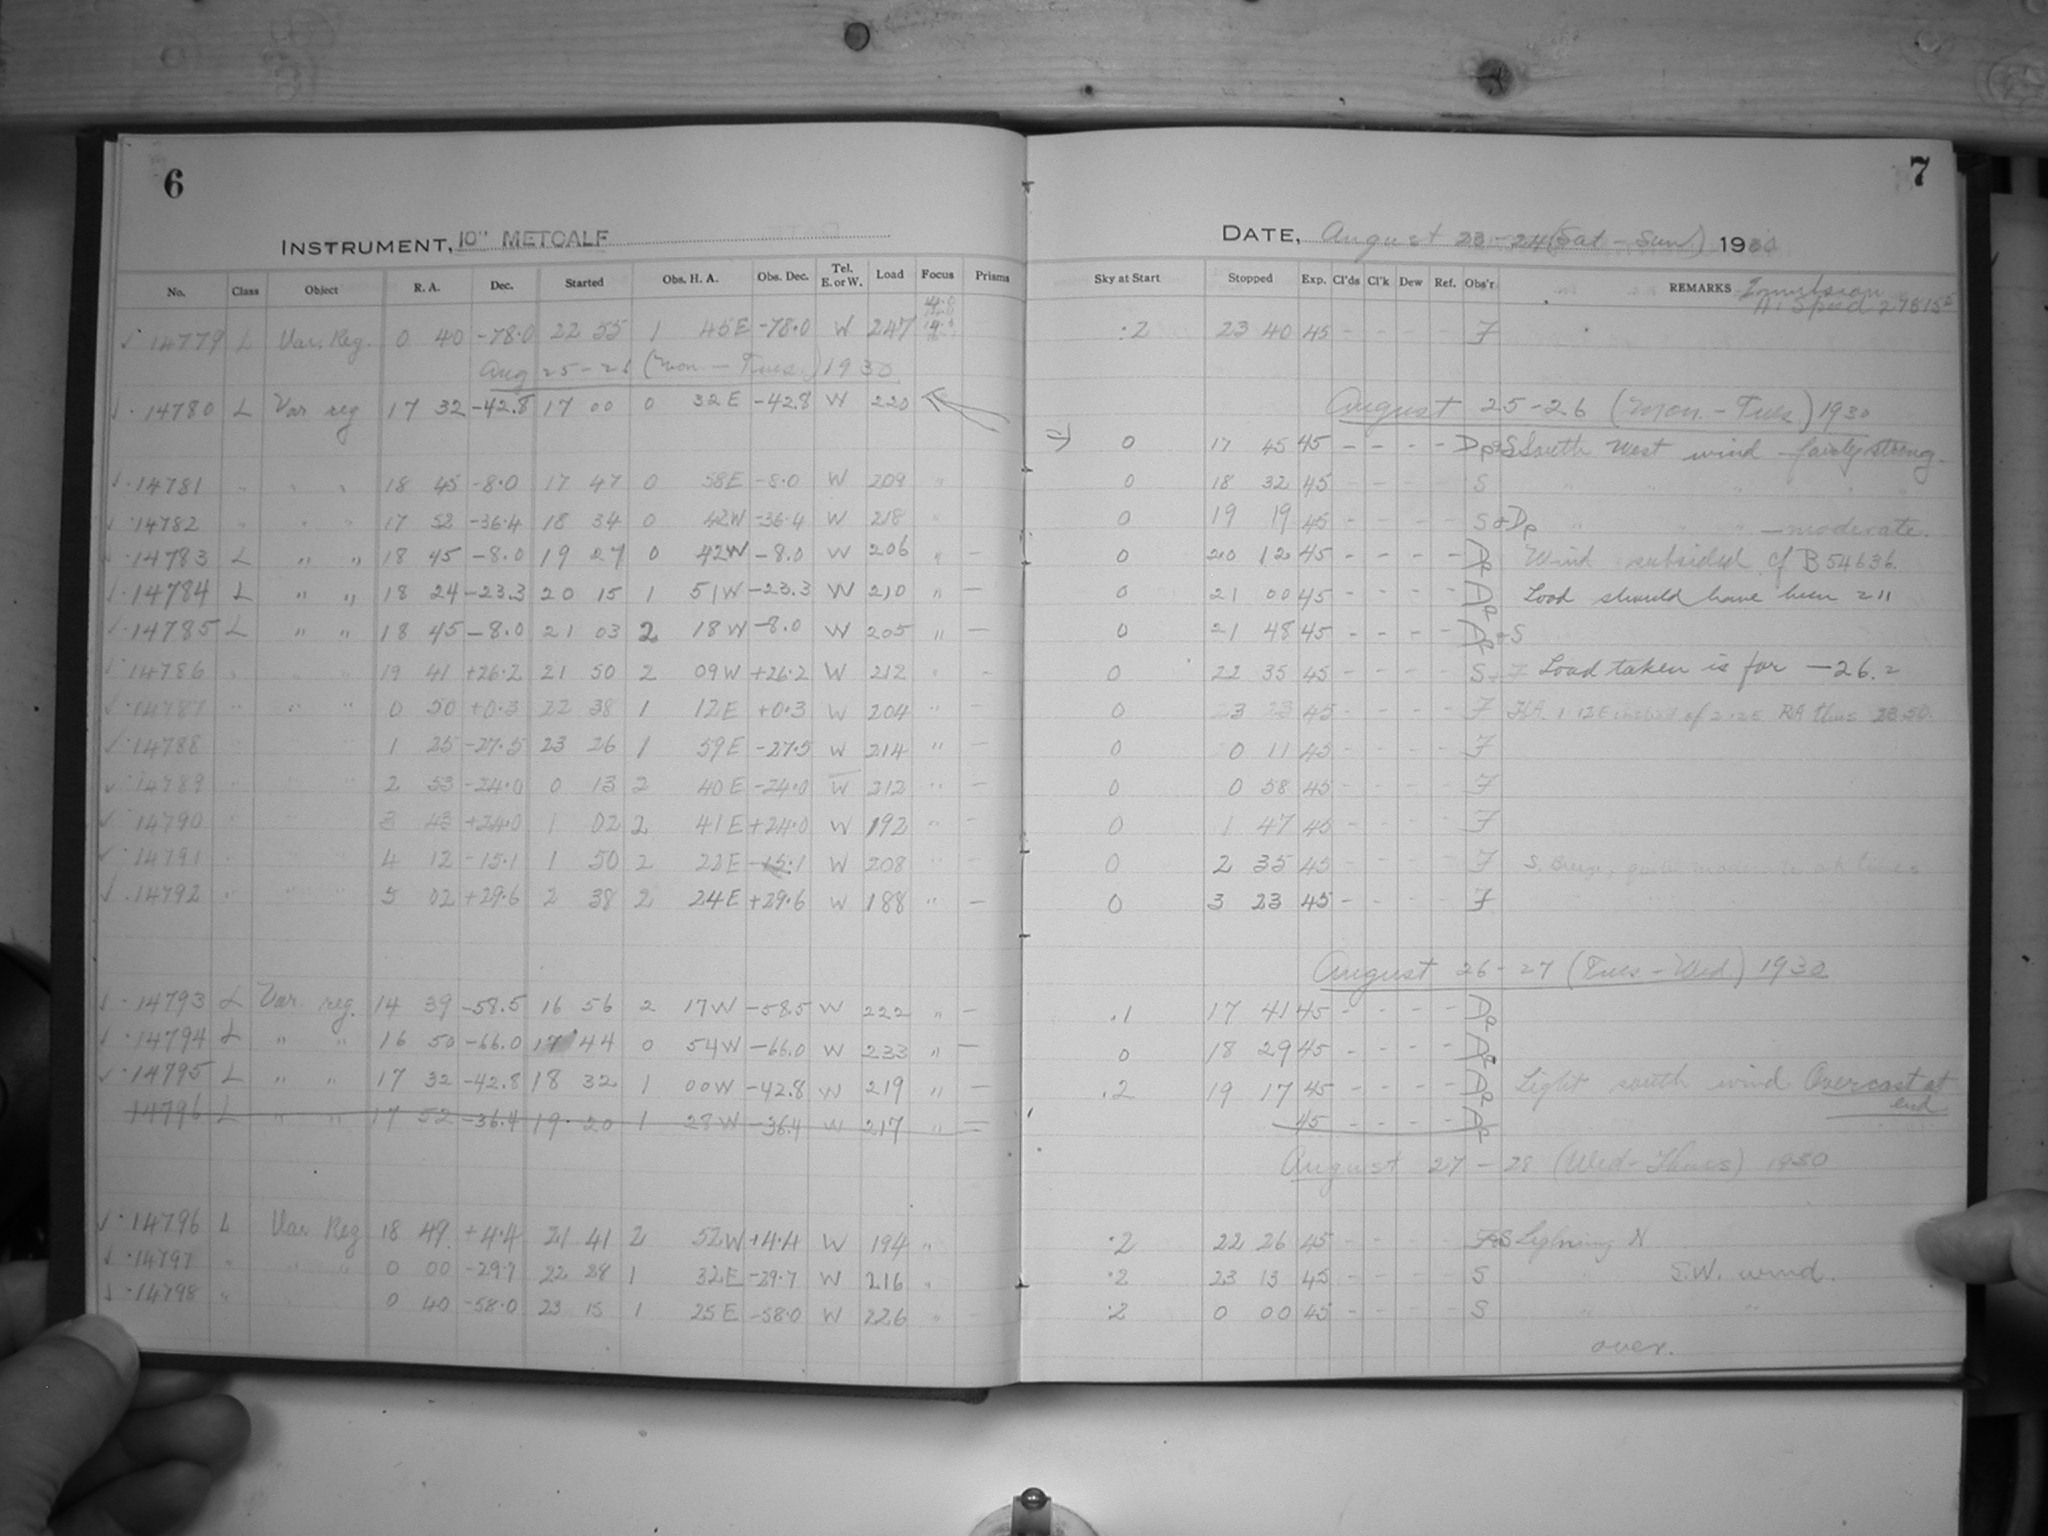 6
INSTRUMENT, 10" METCALF
No. Class Object R. A. Dec. Started Obs. H. A. Obs. Dec. Tel. E. or W. Load Focus Prisms
14779 L Var. Reg. 0 40 -78.0 22 55 1 45E -78.0 W 247
Aug 25-26 (Mon - Tues.) 1930
14780 L Var reg 17 32 -42.8 17 00 0 32E -42.8 W 220
14781 " " " 18 45 -8.0 17 47 0 58E -8.0 W 209 "
14782 " " " 17 52 -36.4 18 34 0 42W -36.4 W 218 "
14783 L " " 18 45 -8.0 19 27 0 42W -8.0 W 206 " -
14784 L " " 18 24 -23.3 20 15 1 51W -23.3 W 210 " -
14785 L " " 18 45 -8.0 21 03 2 18W -8.0 W 205 " -
14786 " " " 19 41 +26.2 21 50 2 09W +26.2 W 212 " -
14787 " " " 0 50 +0.3 22 38 1 12E +0.3 W 204 " -
14788 " " " 1 25 -27.5 23 26 1 59E -27.5 W 214 " -
14789 " " " 2 53 -24.0 0 13 2 40E -24.0 W 212 " -
14790 " " " 3 43 +24.0 1 02 2 41E +24.0 W 192 " -
14791 " " " 4 12 -15.1 1 50 2 22E -15.1 W 208 " -
14792 " " " 5 02 +29.6 2 38 2 24E +29.6 W 188 " -
14793 L Var. reg. 14 39 -58.5 16 56 2 17W -58.5 W 222 " -
14794 L " " 16 50 -66.0 17 44 0 54W -66.0 W 233 " -
14795 L " " 17 32 -42.8 18 32 1 00W -42.8 W 219 " -
14796 L " " 17 52 -36.4 19 20 1 28W -36.4 W 217 " -
14796 L Var. Reg 18 49 +4.4 21 41 2 52W +4.4 W 194 "
14797 " " " 0 00 -29.7 22 28 1 32E -29.7 W 216 "
14798 " 0 40 -58.0 23 15 1 25E -58.0 W 226 "
7
DATE, August 23-24 (Sat - Sun) 1930
Sky at Start Stopped Exp. Cl'ds Cl'k Dew Ref. Obs'r REMARKS Emulsion
Hi Speed 27815
.2 23 40 45 F
August 25-26 (Mon. - Tues) 1930
0 17 45 45 - - - - Dp&S South West wind - fairly strong.
0 18 32 45 - - - - S " " " "
0 19 19 45 - - - - S+Dp " " " - moderate.
0 20 12 45 - - - - Dp Wind subsided. cf B 54636.
0 21 00 45 - - - - Dp Load should have been 211
0 21 48 45 - - - - Dp+S
0 22 35 45 - - - - S+F Load taken is for -26.2
0 23 23 45 - - - - F HA 1 12E instead of 2 12E RA thus 23.50.
0 0 11 45 - - - - F
0 0 58 45 - - - - F
0 1 47 45 - - - - F
0 2 35 45 - - - - F S. breeze, quite moderate at times
0 3 23 45 - - - - F
August 26-27 (Tues - Wed) 1930
.1 17 41 45 - - - - Dp
0 18 29 45 - - - - Dp
.2 19 17 45 - - - - Dp Light south wind Overcast at end
45 - - - - Dp
August 27-28 (Wed - Thurs) 1930
.2 22 26 45 - - - - F&S Lightning N
.2 23 13 45 - - - - S " S.W. wind.
.2 0 00 45 - - - - S " "
over.